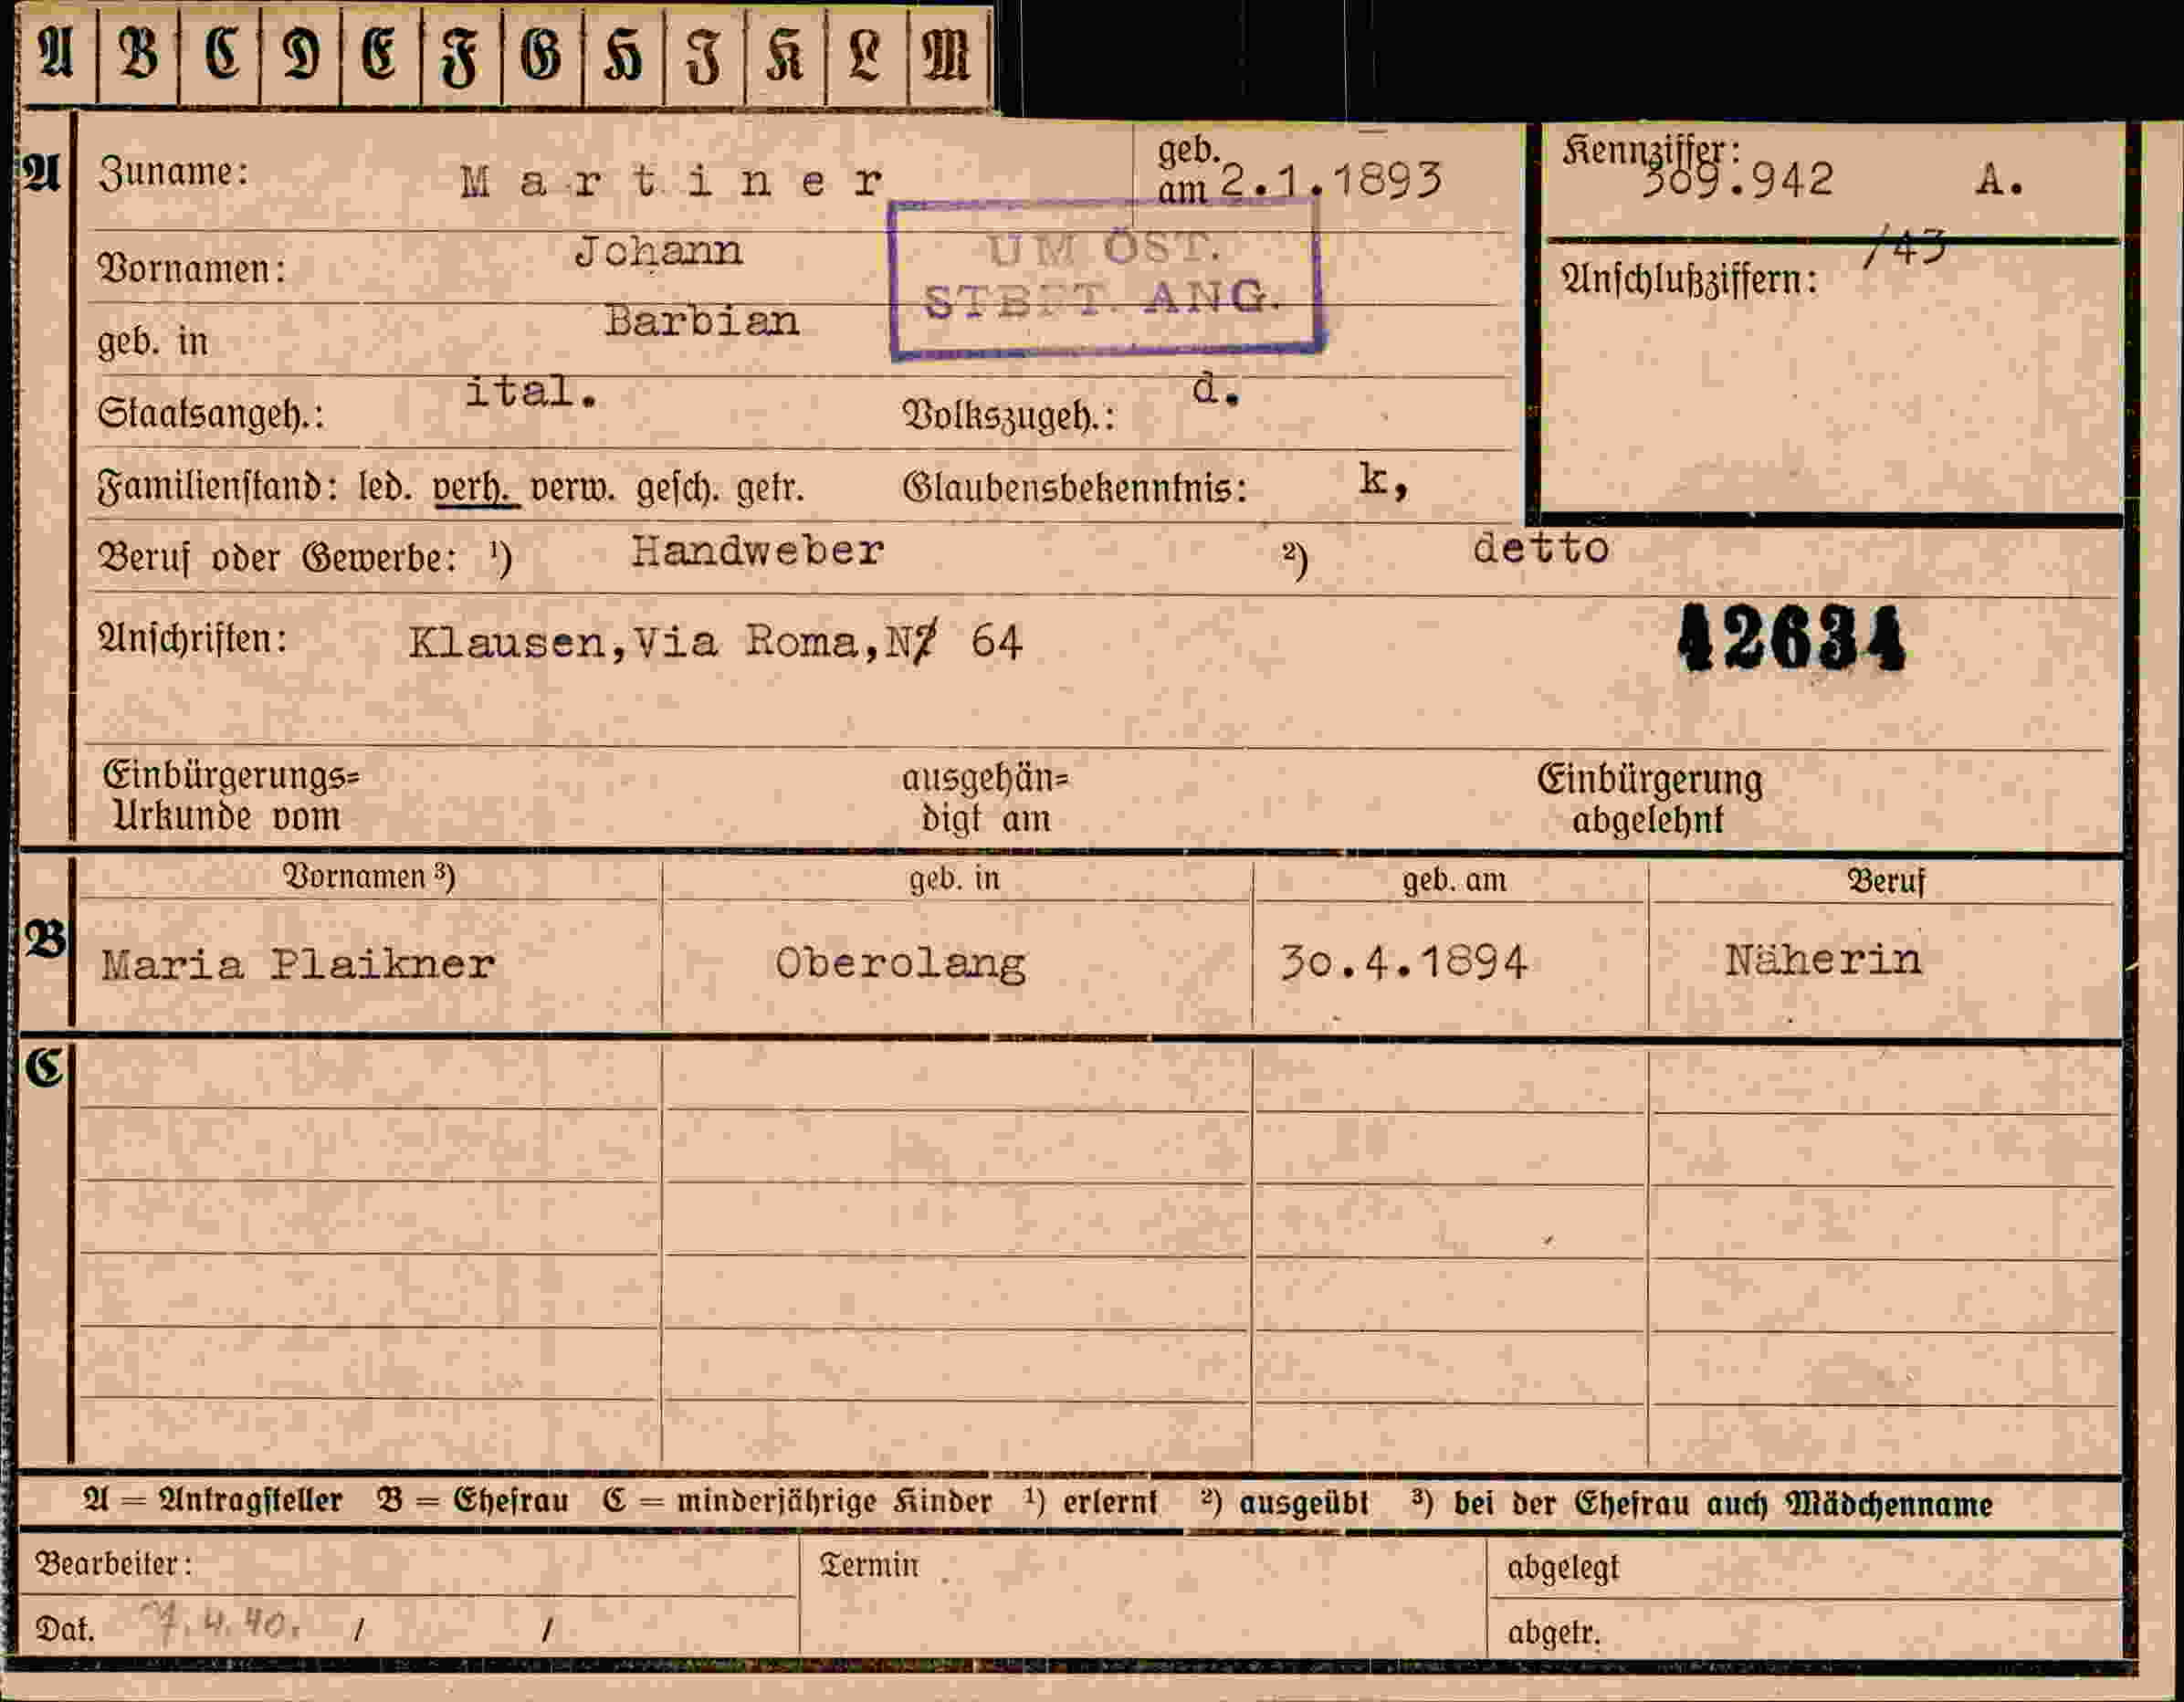 A B C D E F G H J K L M
A Zuname: Martiner geb. am 2.1.1893 Kennziffer: 309.942 A.
/43
Vornamen: Johann UM ÖST. Anschlußziffern:
geb. in Barbian STBFT. ANG.
Staatsangeh.: ital. Volkszugeh.: d.
Familienstand: led. verh. verw. gesch. getr. Glaubensbekenntnis: k,
Beruf oder Gewerbe: ¹) Handweber ²) detto
Anschriften: Klausen,Via Roma,N 64 42634
Einbürgerungs= ausgehän= Einbürgerung
Urkunde vom digt am abgelehnt
Vornamen ³) geb. in geb. am Beruf
B Maria Plaikner Oberolang 30.4.1894 Näherin
C
A = Antragsteller B = Ehefrau C = minderjährige Kinder ¹) erlernt ²) ausgeübt ³) bei der Ehefrau auch Mädchenname
Bearbeiter: Termin abgelegt
Dat. 7.4.40. / / abgetr.